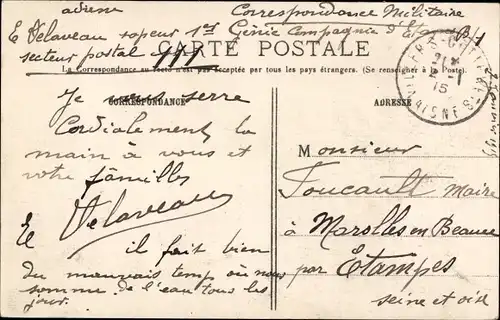 adresse
Correspondance Militaire
E Velaveau sapeur 1er Génie Compagnie d'
secteur postal
CARTE POSTALE
La Correspondance au recto n'est pas acceptée par tous les pays étrangers. (Se renseigner à la Poste).
CORRESPONDANCE
ADRESSE
Je vous serre
Cordialement la
main à vous et
votre familles
E Velaveau
il fait bien
du mauvais temp où nous
somme de l'eau tous les
jour.
15
AISNE
Monsieur
Foucault Maire
à Marolles en Beauce
par Étampes
seine et oise